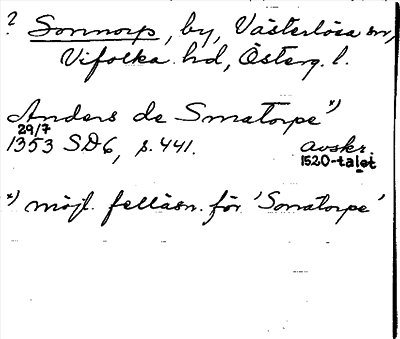 ? Sonnorp, by, Västerlösa sn,
Vifolka hd, Österg. l.
Anders de Smatorpe *)
29/7
1353 SD6, s. 441. avskr.
1520-talet
*) möjl. felläsn. för 'Somatorpe'